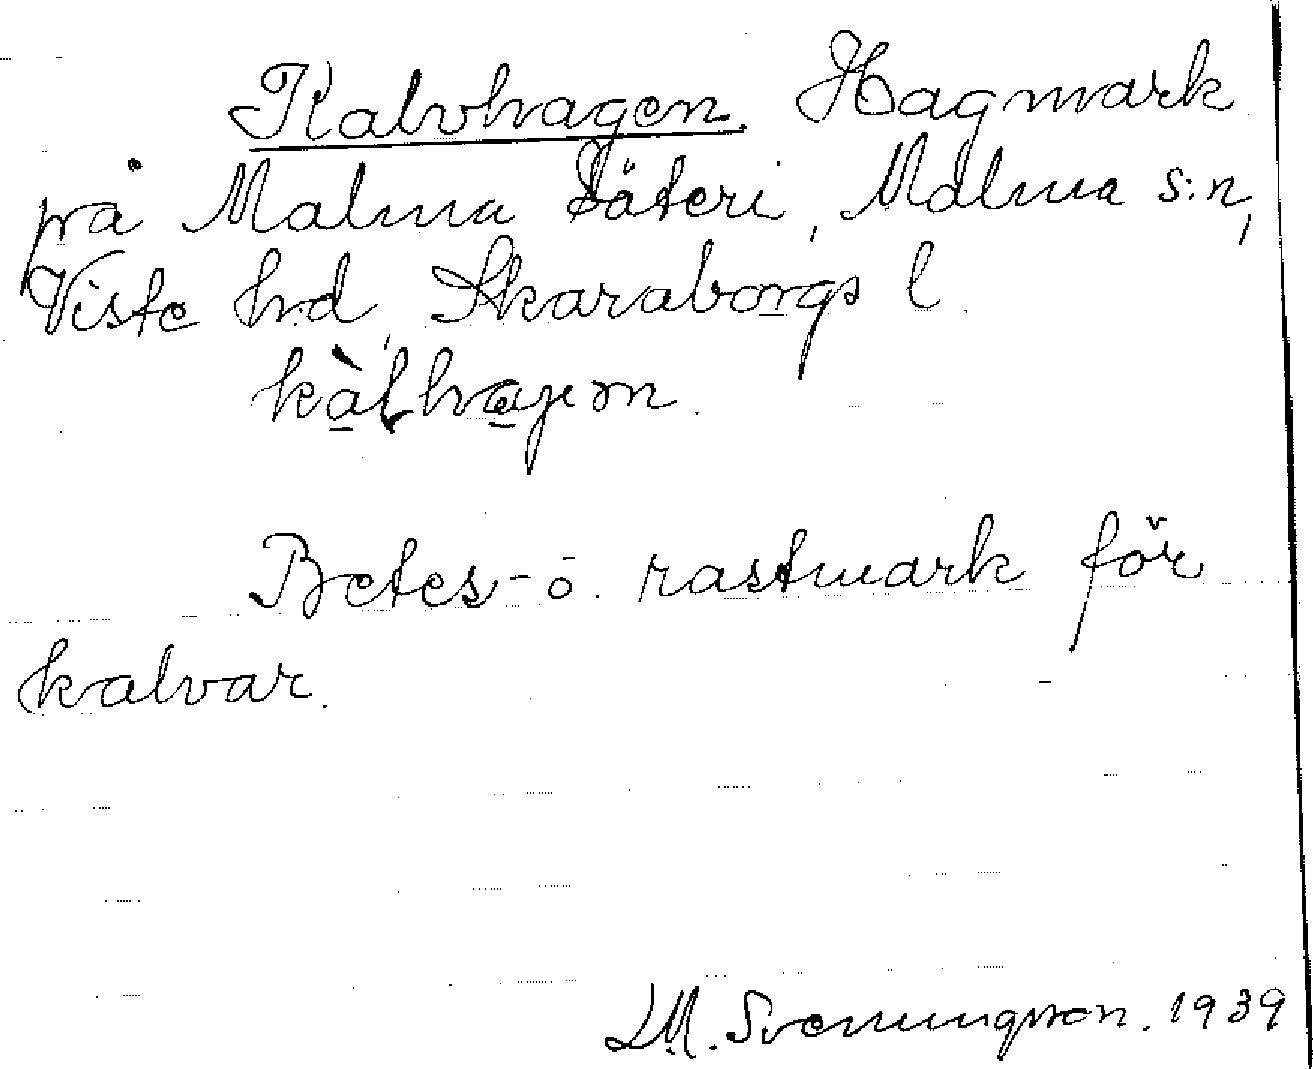 Kalvhagen. Hagmark
på Malma Säteri, Malma s:n,
Viste hd, Skaraborgs l.
kàlhagen.
Betes- o. rastmark för
kalvar.
M. Svenungson. 1939